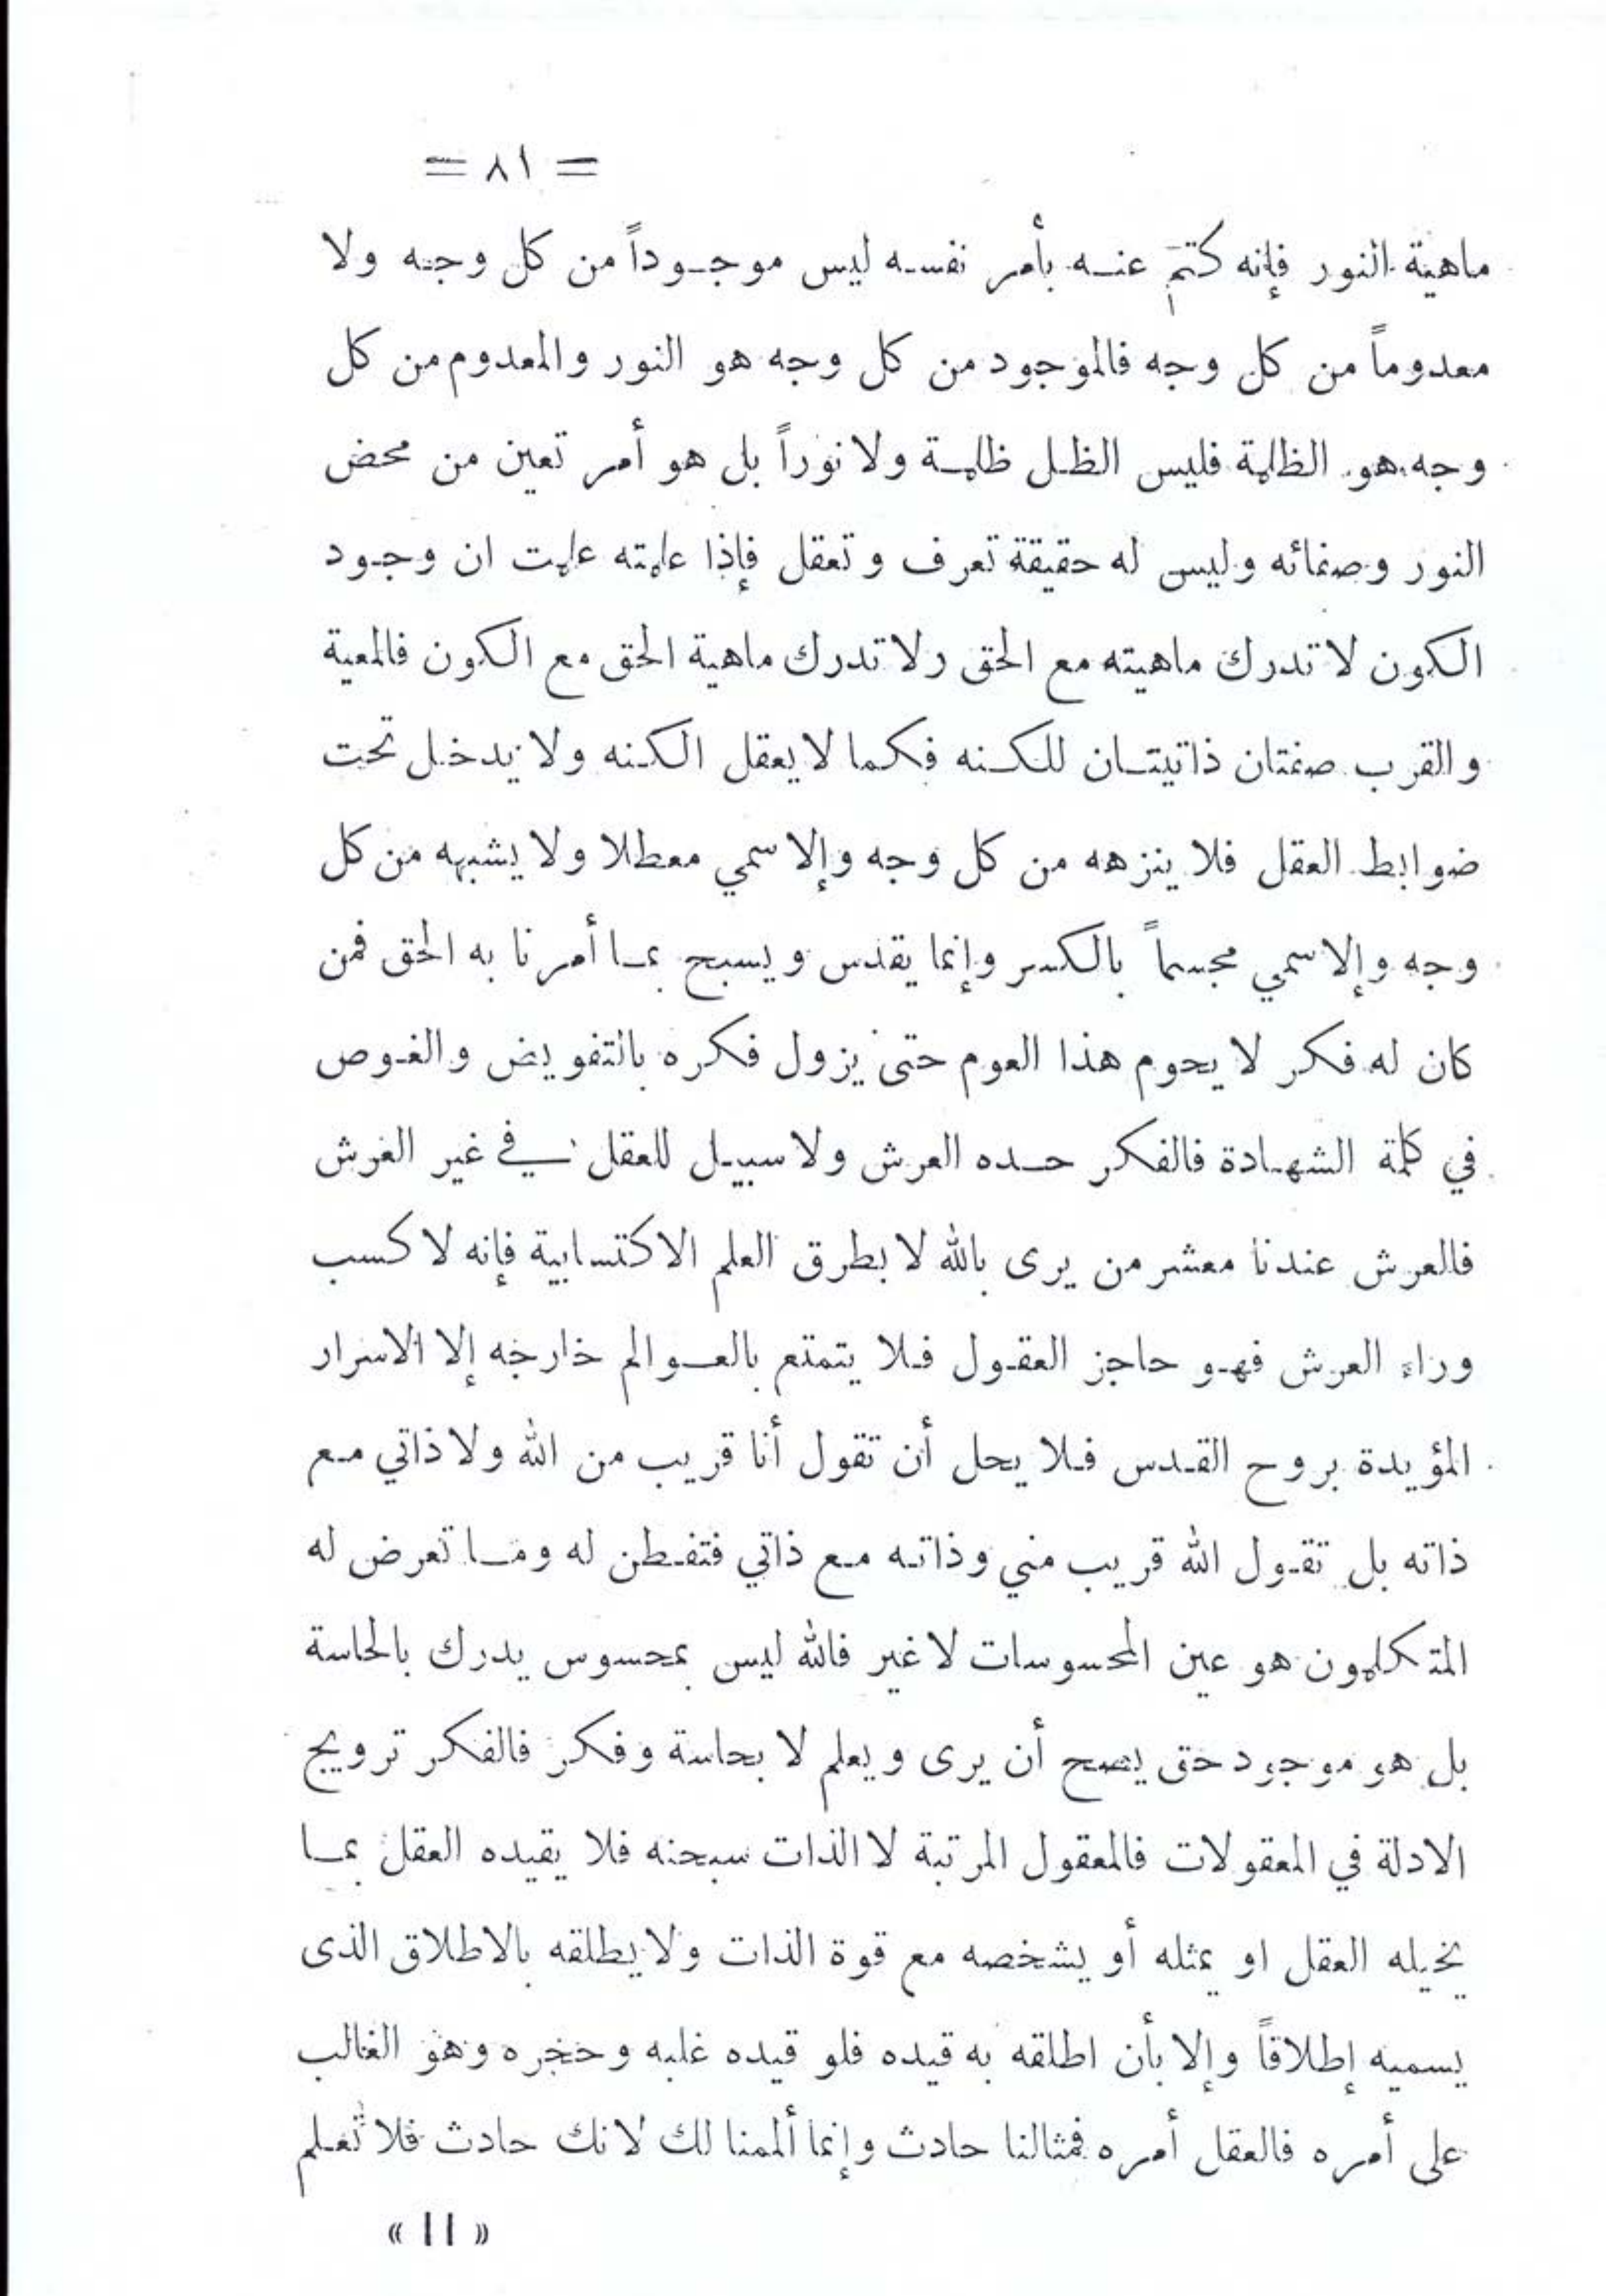 = ٨١ =
ماهية النور فإنه كتم عنه بأمر نفسه ليس موجوداً من كل وجه ولا
معدوماً من كل وجه فالموجود من كل وجه هو النور والمعدوم من كل
وجه هو الظلمة فليس الظل ظلمة ولا نوراً بل هو أمر تعين من محض
النور وصفائه وليس له حقيقة تعرف وتعقل فإذا علمته علمت ان وجود
الكون لا تدرك ماهيته مع الحق ولا تدرك ماهية الحق مع الكون فالمعية
والقرب صفتان ذاتيتان للكنه فكما لا يعقل الكنه ولا يدخل تحت
ضوابط العقل فلا ينزهه من كل وجه وإلا سمي معطلا ولا يشبهه من كل
وجه وإلا سمي مجسماً بالكسر وإنما يقدس ويسبح بما أمرنا به الحق فمن
كان له فكر لا يحوم هذا العوم حتى يزول فكره بالتفويض والغوص
في كلمة الشهادة فالفكر حده العرش ولا سبيل للعقل في غير العرش
فالعرش عندنا معشر من يرى بالله لا بطرق العلم الاكتسابية فإنه لا كسب
وراء العرش فهو حاجز العقول فلا يتمتع بالعوالم خارجه إلا الاسرار
المؤيدة بروح القدس فلا يحل أن تقول أنا قريب من الله ولا ذاتي مع
ذاته بل تقول الله قريب مني وذاته مع ذاتي فتفطن له وما تعرض له
المتكلمون هو عين المحسوسات لا غير فالله ليس بمحسوس يدرك بالحاسة
بل هو موجود حق يصح أن يرى ويعلم لا بحاسة وفكر فالفكر ترويج
الادلة في المعقولات فالمعقول المرتبة لا الذات سبحنه فلا يقيده العقل بما
يخيله العقل او يمثله أو يشخصه مع قوة الذات ولا يطلقه بالاطلاق الذى
يسميه إطلاقاً وإلا بأن اطلقه به قيده فلو قيده غلبه وحجره وهو الغالب
على أمره فالعقل أمره فمثالنا حادث وإنما ألممنا لك لانك حادث فلا تعلم
« ١١ »